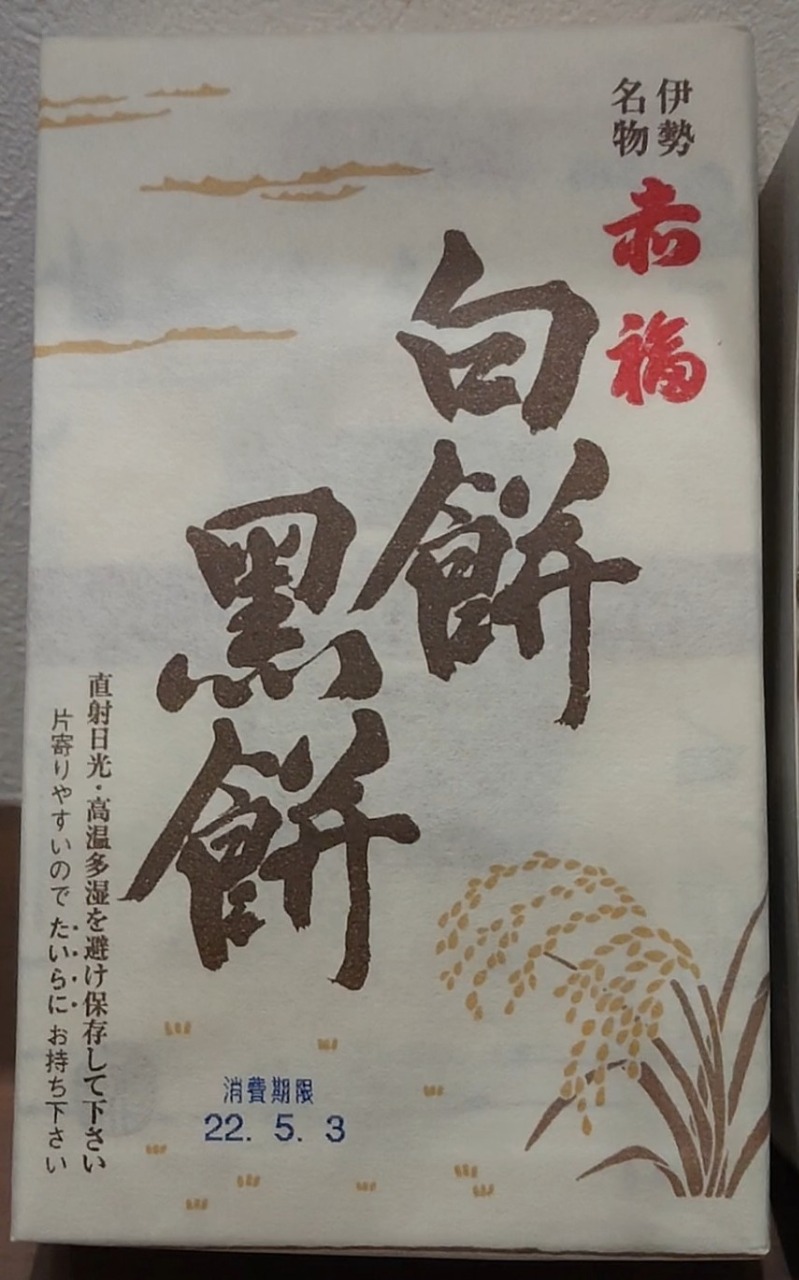 伊勢
名物
赤福
白餅
黑餅
直射日光・高温多湿を避け保存して下さい
片寄りやすいので たいらに お持ち下さい
消費期限
22. 5. 3